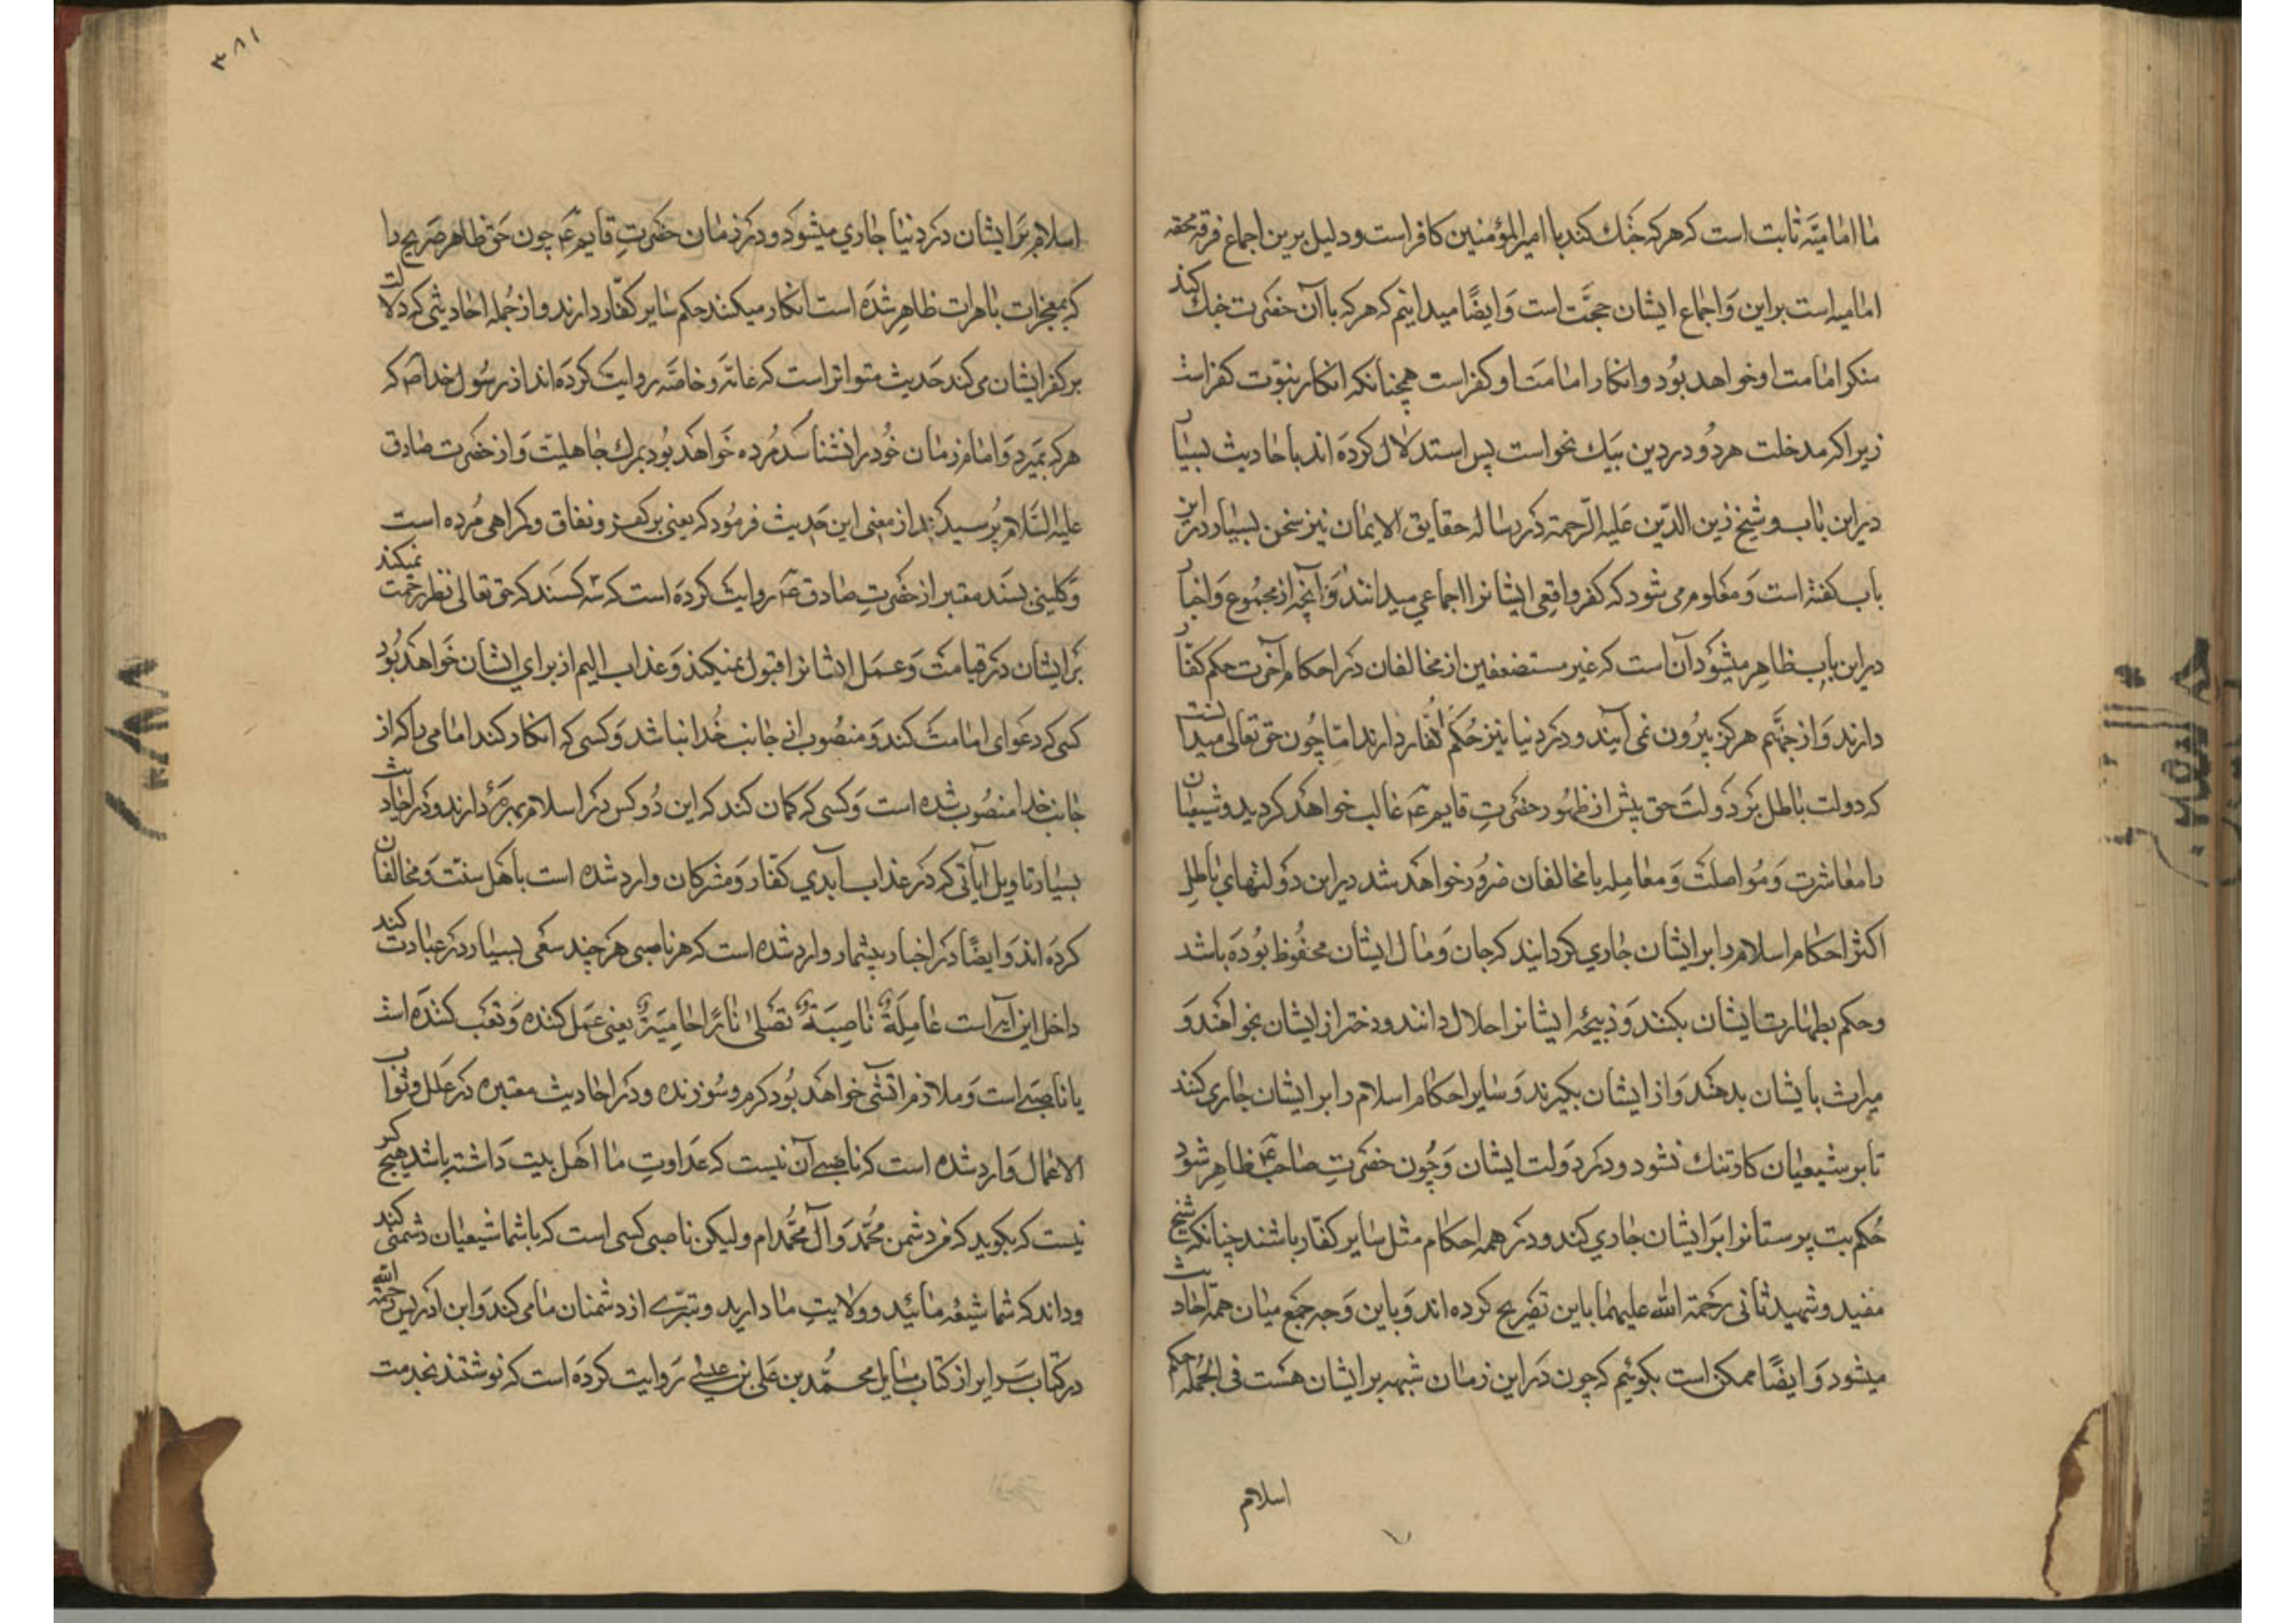 ما امامیّه ثابت است که هرکه جَنك کند با امیر المؤمنین کافر است و دلیل برین اجماع فرقه محقه
امامیه است براین وَاجماع ایشان حجَّت است وَایضًا میدانیم که هرکه باآن حضرت جنك کند
منکر امامت او خواهد بوُد وانکار امامَت او کفر است همچنانکه انکار نبوّت کفر است
زیراکه مدخلت هردُو در دین بیك نحو است پس استدلال کردَه اند باحادیث بسیار
دراین باب و شیخ زین الدّین عَلیه الرّحمة دَر رساله حقایق الایمان نیز سخن بسیار در این
باب کفته است وَمعَلوم می شود که کفر واقعِی ایشانرا اجماعي میدانند وَآنچه از مجموُع وَاخبار
دراین باب ظاهِر میشوَد آن است که غیر مستضعفین از مخالفان دَر احکام آخرت حکم کفّار
دارند وَاز جهنَّم هرکز بیرُون نمی آیند و دَر دنیا نیز حُکم کفّار دارند امّا چُون حق تعالی میدانست
که دولت باطل بَر دَولتَ حق پیش از ظهُور حضرتِ قایم ع۴ غالب خواهَد کردید و شیعیان
را معَاشرتِ وَمُواصلتَ وَمعَامِله با مخالفان ضرُور خواهَد شد دراین دَولتهاي باطِل
اکثر احکام اسلام را بر ایشان جاري کردانید که جان وَمال ایشان محفُوظ بوُدَه باشد
وحکم بطهارت ایشان بکنند وَذبیحَه ایشانرا حلال دانند و دختر از ایشان بخواهَند وَ
میراث بایشان بدهَند وَاز ایشان بکیرند وَسایر احکام اسلام را بر ایشان جاری کنند
تا بر شیعیان کار تنك نشود و دَر دَولت ایشان وَچُون حضَرتِ صاحب ع۴ ظاهِر شود
حُکم بت پرستانرا بَر ایشان جاري کند و دَر همه احکام مثل سایر کفّار باشند چنانکه شیخ
مفید و شهید ثانی رحَمة الله علیهما باین تصَریح کرده اند وَباین وَجه جَمع میان همه احادیث
میشود وَایضًا ممکن است بکوئیم که چون دَراین زمان شبهه بر ایشان هسَت فی الجُمله حکم
اسلام
۳۸۱
اسلام بَر ایشان دَر دنیا جاري میشوَد و دَر زمان حضَرتِ قایم ع۴ چون حَق ظاهر صَریح را
که بمعجزات باهرات ظاهِر شدَه است انکار میکنند حکم سایر کفّار دارند و از جُمله احادیثی که دلالت
بر کفر ایشان می کند حَدیث متواتر است که عامّه و خاصَّه روایتَ کردَه اند از رسُول خدا ص که
هرکه بمَیرد وَامام زمان خُود را نشناسَد مُرده خَواهَد بوُد بمرك جاهلیّت وَاز حضَرت صادق
علیه السَّلام پُرسیدند از معنی این حَدیث فرموُد که یعنی بر کفر و نفاق و کمراهی مُرده است
وَکلینی بسَند معَتبر از حضَرتِ صادق ع۴ روایت کردَه است که سه کسَند که حق تعالی نظر رحمت نمیکند
بَر ایشان دَر قیامت وَعمَل ایشانرا قبول نمیکند وَعذاب الیم از برای ایشان خَواهَد بوُد
کسی که دعَوای امامت کند وَمنصُوب از جانب خُدا نباشد وَکسی که انکار کند امامی را که از
جانب خدا منصُوب شده است وَکسی که کمان کند که این دُو کس دَر اسلام بهرَه دارند و دَر احادیث
بسیار تاویل آیاتی که دَر عذاب آبدي کفّار وَمشرکان وارد شده است باهَل سنّت وَمخالفان
کردَه اند وَایضًا دَر اخبار بیشمار وارد شده است که هر ناصبی هرَچند سعَی بسیار دَر عبادت کند
داخل این آیه است عَامِلَةٌ نَاصِبَةٌ تَصْلیٰ نَارًا حَامِیَةً یعنی عَمل کننده وَتعَب کنندَه است
یا ناصبی است وَملازم آتشی خواهَد بوُد کرم و سُوزنده و دَر احادیث معتبره دَر علَل و ثواب
الاعمال وَارد شده است که ناصبی آن نیست که عدَاوتِ ما اهَل بیت دَاشته باشد هیچ کس
نیست که بکوید که من دشمن محُمّد وَآل محُمّدام و لیکن ناصبی کسی است که باشما شیعیان دشمنی کند
و داند که شما شیعَه مائید و وَلایتِ ما دارید و تبرّی از دشمنان ما می کند وَابن ادَریس رحمه الله
در کتاب سَرایر از کتاب مسَایل محمّد بن عَلی بن عیسی رَوایت کردَه است که نوشتند بخدمت